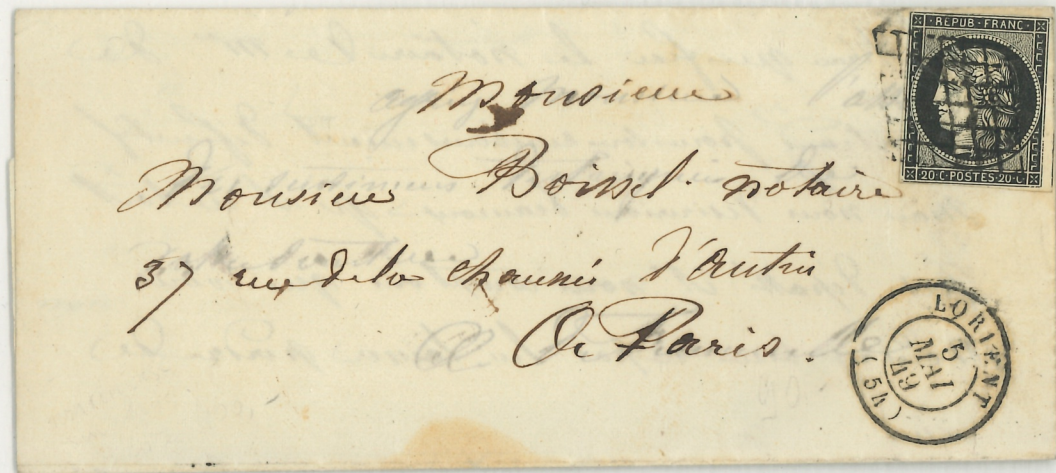 REPUB·FRANC·
20·C·POSTES·20·C
Monsieur
Monsieur Boissel. notaire
37 rue de la chaussée d'Antin
A Paris.
LORIENT
5
MAI
49
(54)